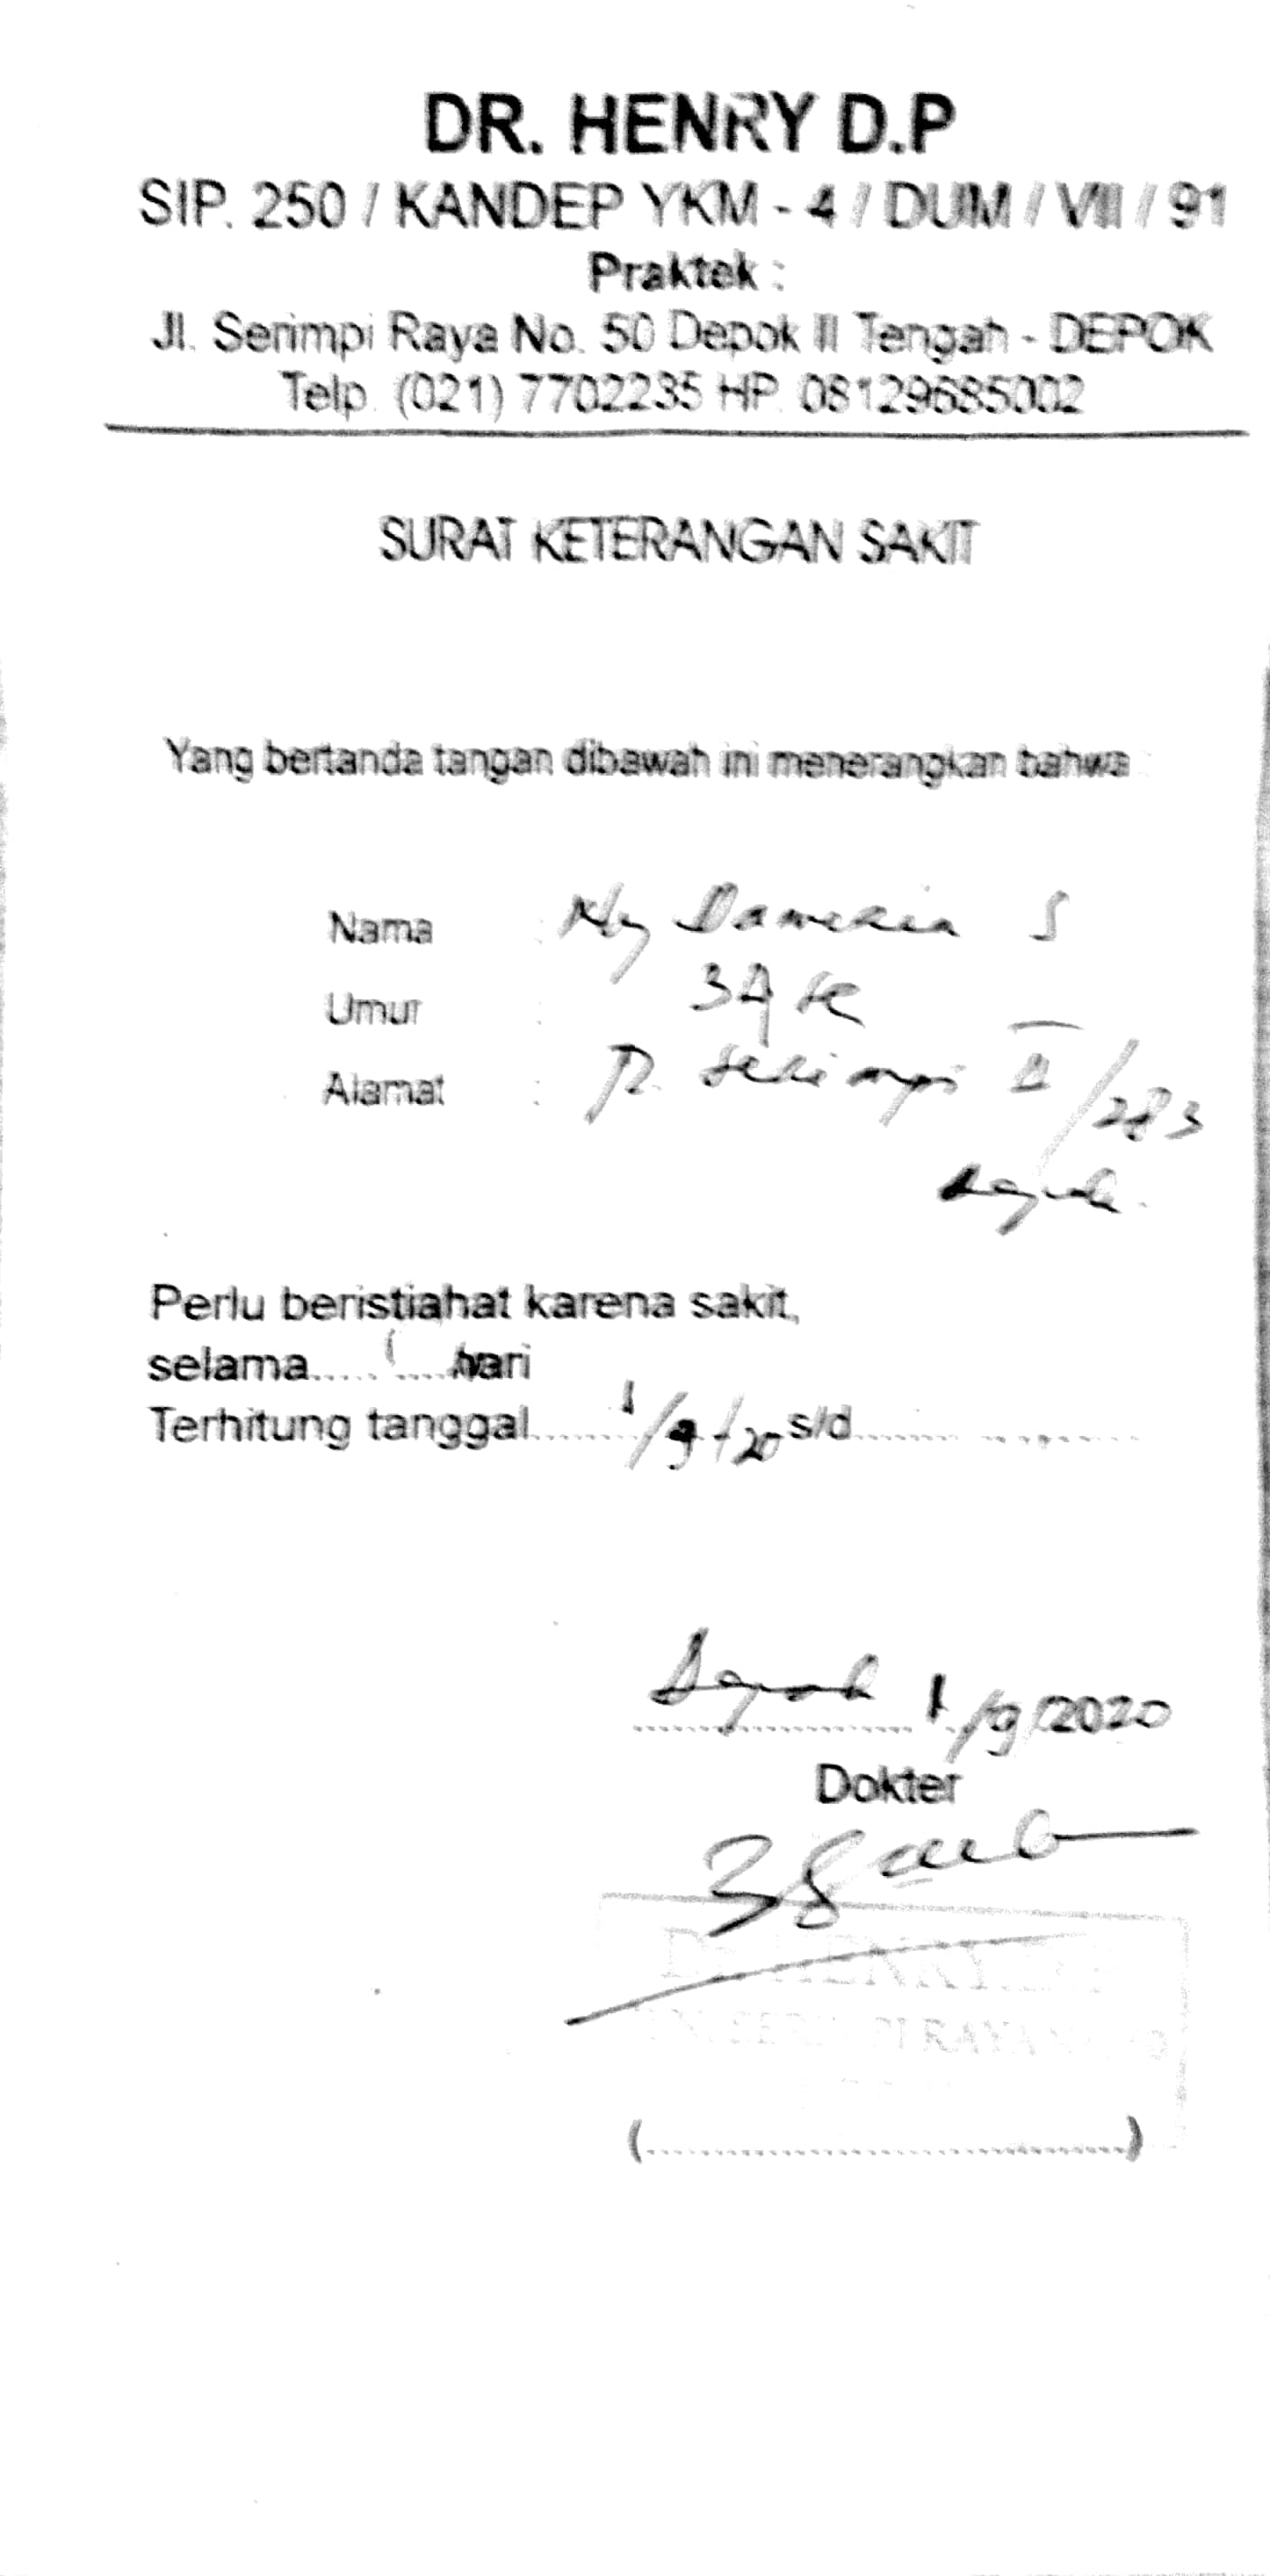 DR. HENRY D.P
SIP. 250 / KANDEP YKM - 4 / DUM / VIII / 91
Praktek :
Jl. Serimpi Raya No. 50 Depok II Tengah - DEPOK
Telp. (021) 7702235 HP. 08129685002
SURAT KETERANGAN SAKIT
Yang bertanda tangan dibawah ini menerangkan bahwa :
Nama : Ny Dameria S
Umur :
Alamat : Jl. Serimpi II / 283
Depok.
Perlu beristiahat karena sakit,
selama..... 1 ....hari
Terhitung tanggal........ 1/9/20 s/d....................
Depok 1/9/2020
Dokter
DR. HENRY D.P
JLN. SERIMPI RAYA
(....................................)